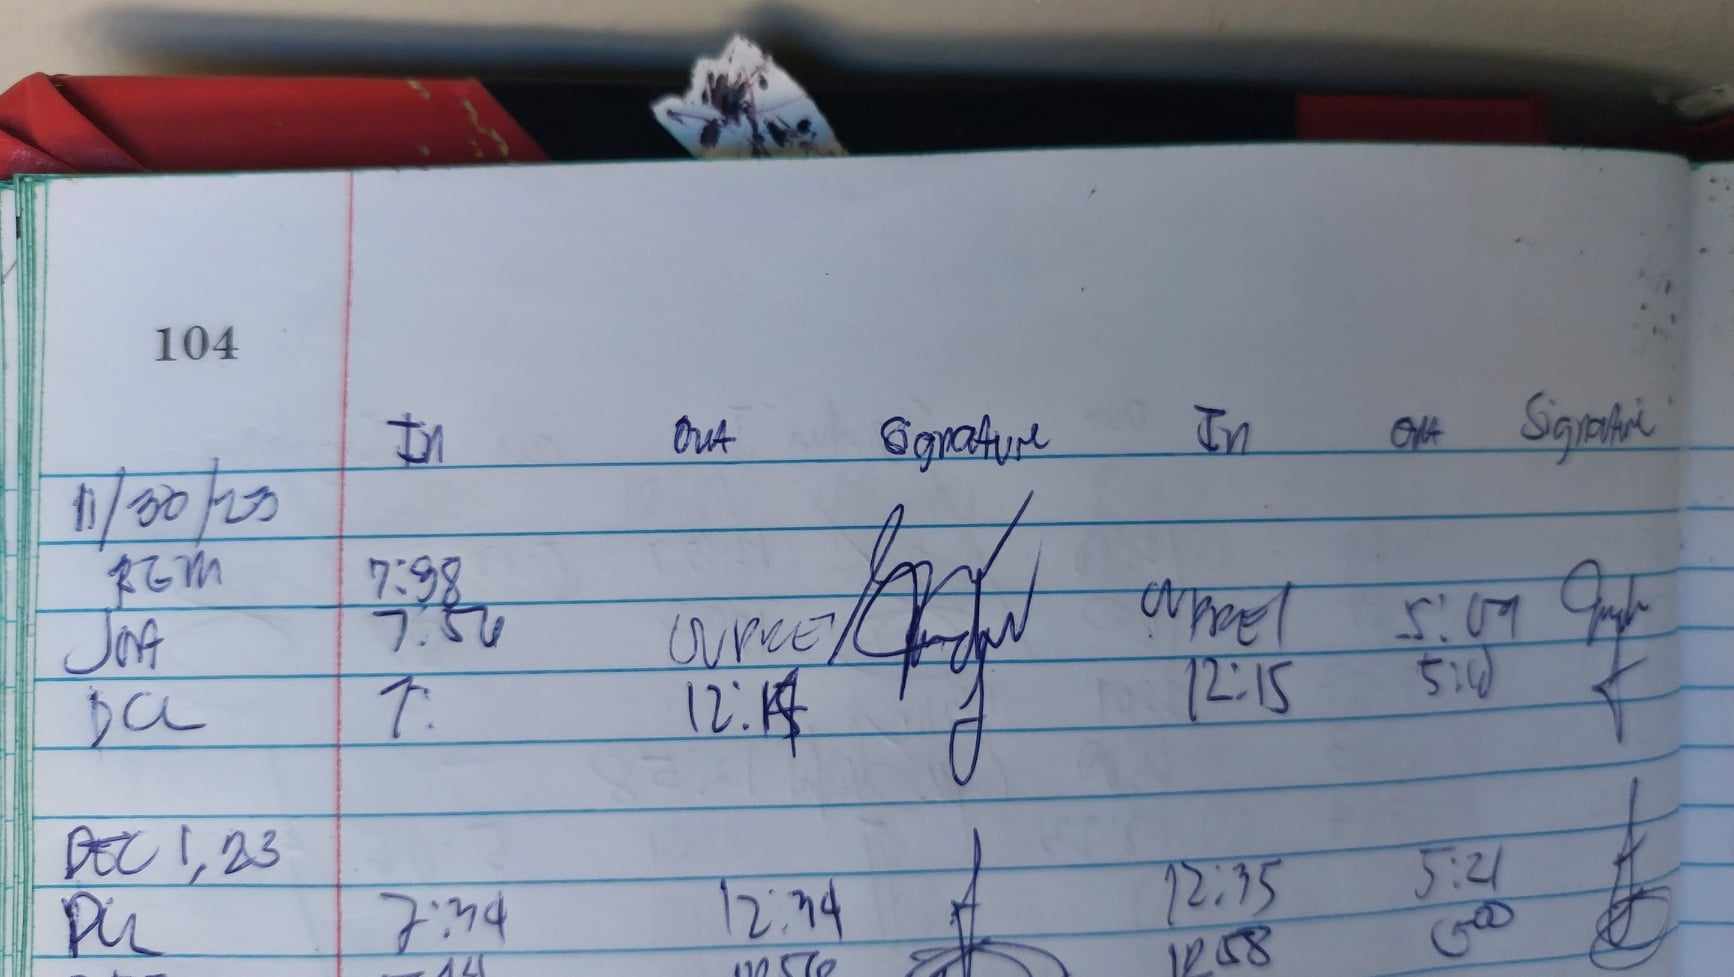 104
In Out Signature In Out Signature
11/30/23
REM
JOA 7:56 5:09
DCL 7: 12:14 12:15 5:10
DEC 1, 23
DCL 7:34 12:34 12:35 5:21
12:58 5:00